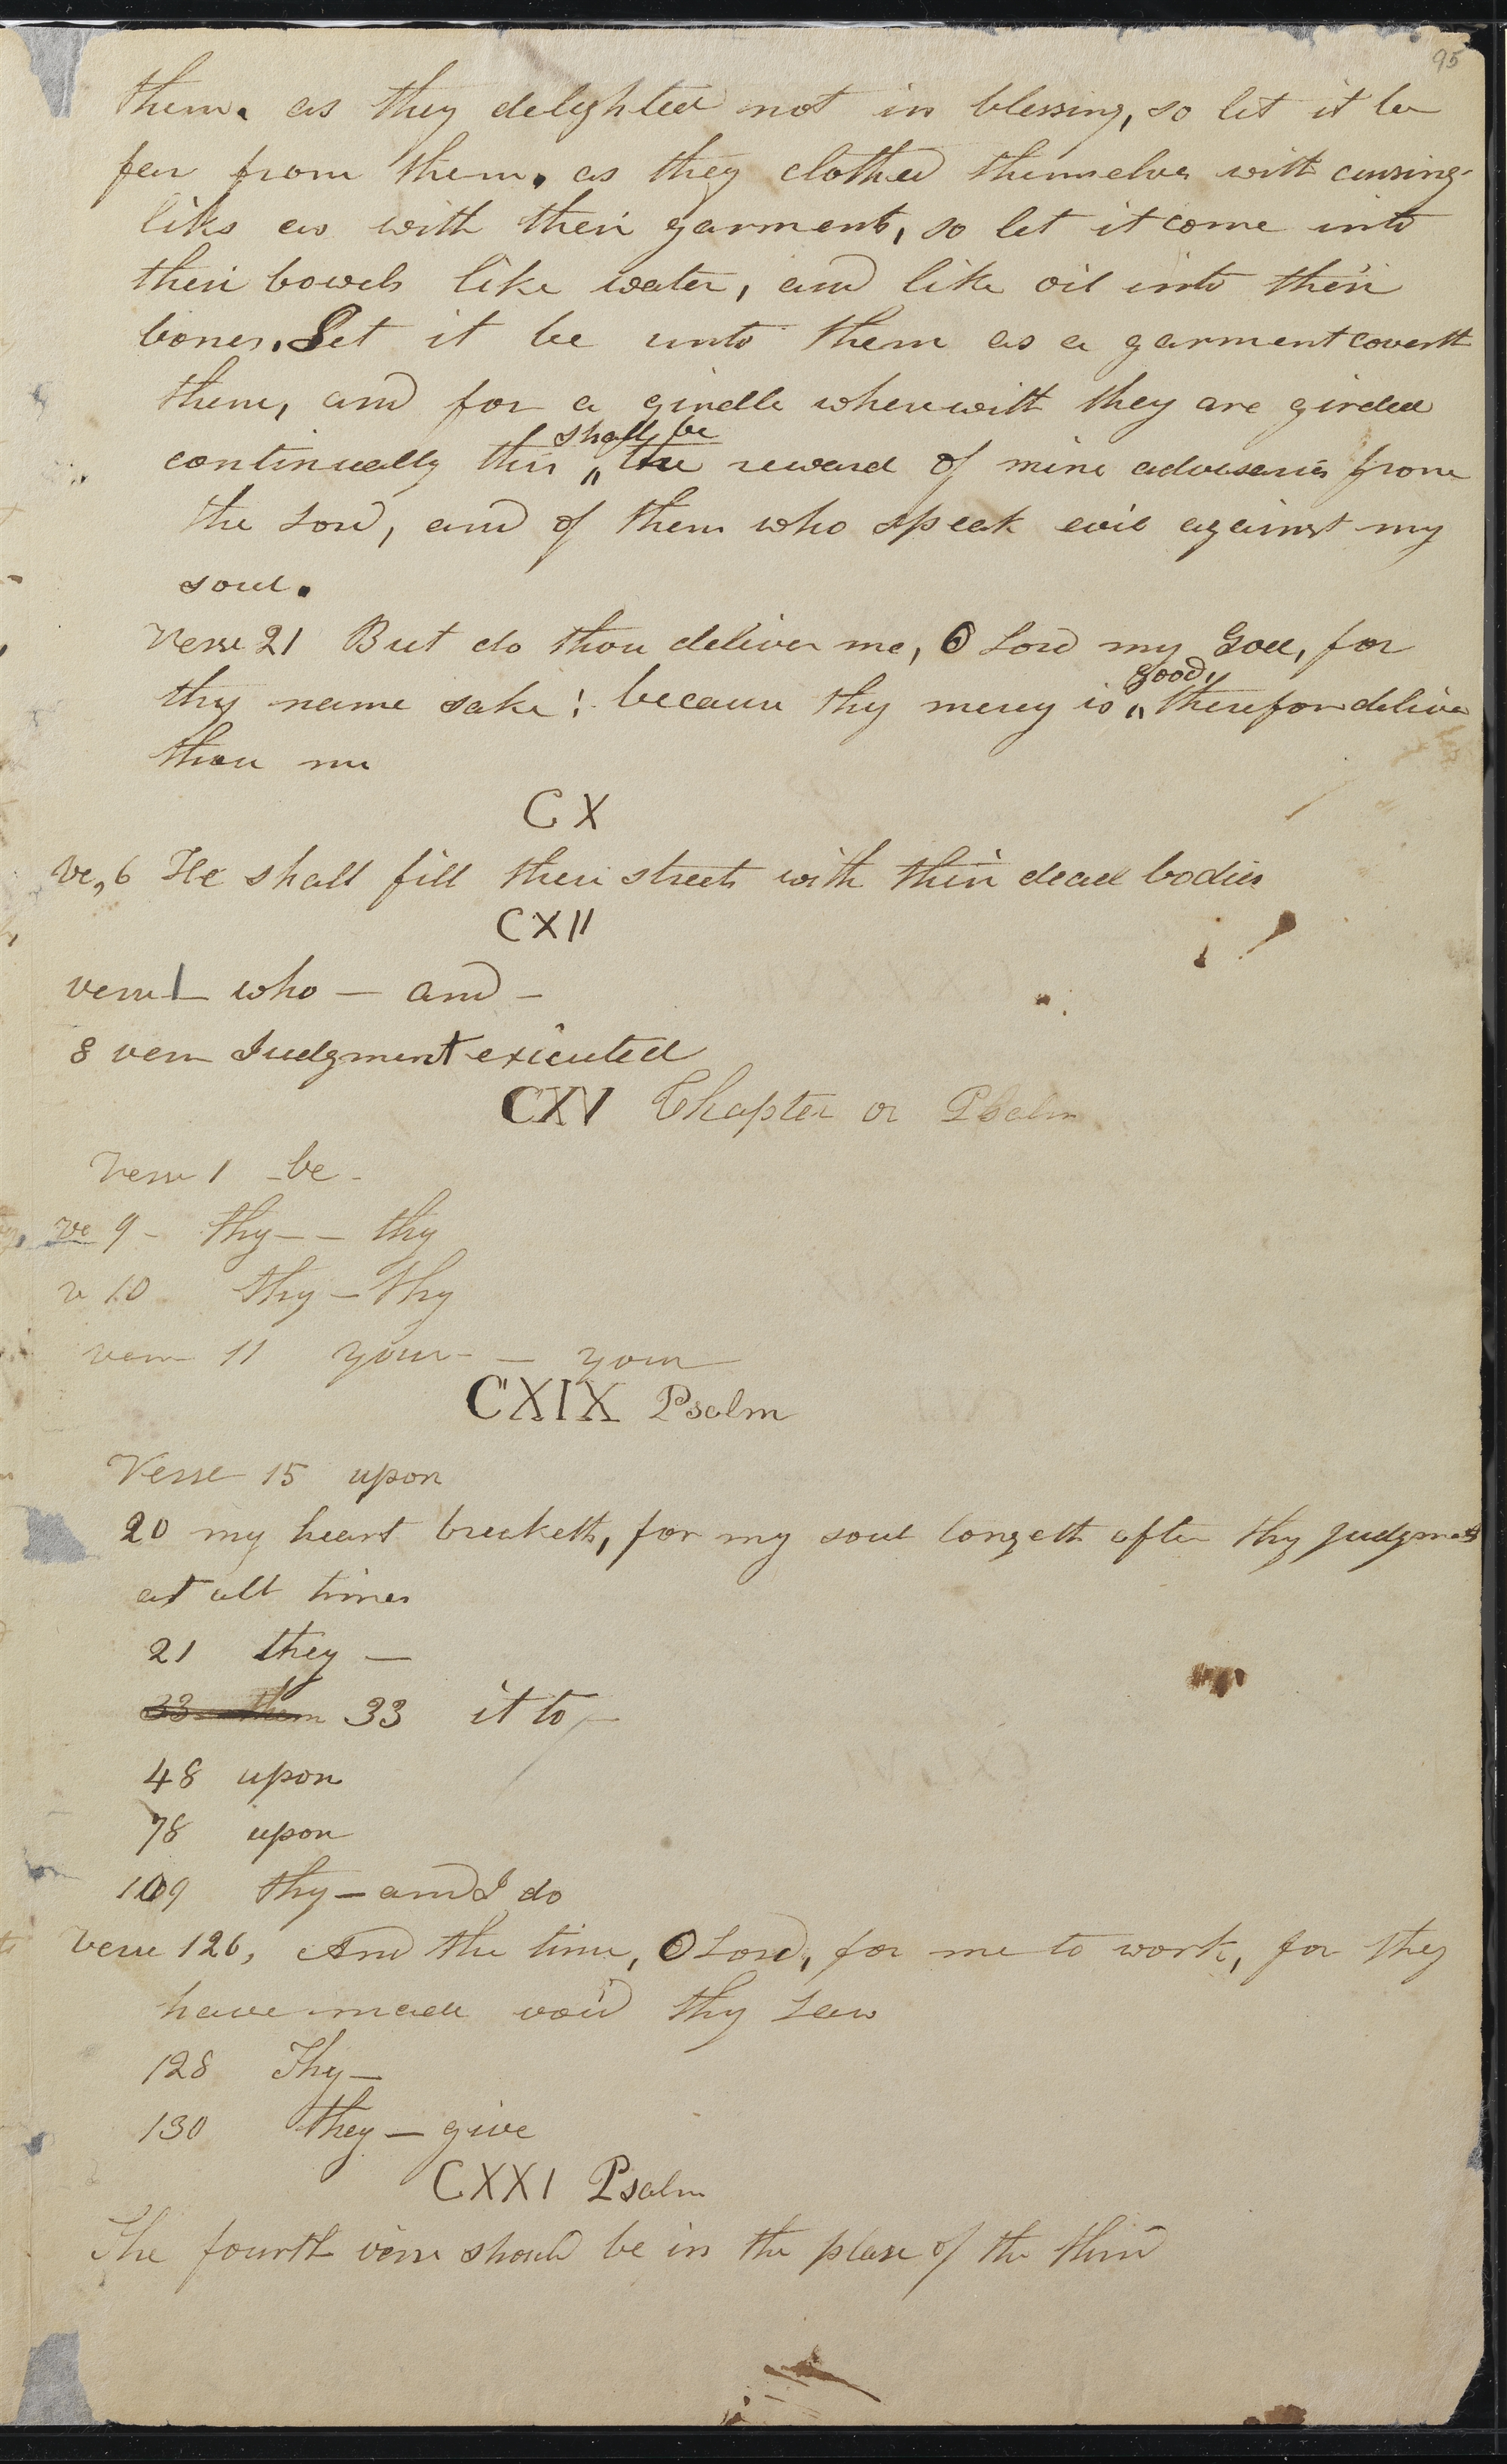 95
them. as they delighted not in blessing, so let it be
far from them. as they clothed themselves with cursing
like as with their garments, so let it come into
their bowels like water, and like oil into their
bones. Let it be unto them as a garment covereth
them, and for a girdle wherewith they are girded
shall be
continually this " the reward of mine adversaries from
the Lord, and of them who speak evil against my
soul.
Verse 21 But do thou deliver me, O Lord my God, for
good,
thy name sake: because thy mercy is " therefore deliver
thou me
CX
Ve, 6 He shall fill their streets with their dead bodies
CXII
verse 1 — who — and —
8 verse Judgment executed
CXV Chapter or Psalm
Verse 1 — be —
ve 9 — thy — — thy
v 10 thy — Thy
verse 11 your — — your
CXIX Psalm
Verse 15 upon
20 my heart breaketh, for my soul longeth after thy judgments
at all times
21 they —
33 them 33 it to —
48 upon
78 upon
109 thy — and I do
Verse 126, And the time, O Lord, for me to work, for they
have made void thy Law
128 Thy —
130 they — give
CXXI Psalm
The fourth verse should be in the place of the third